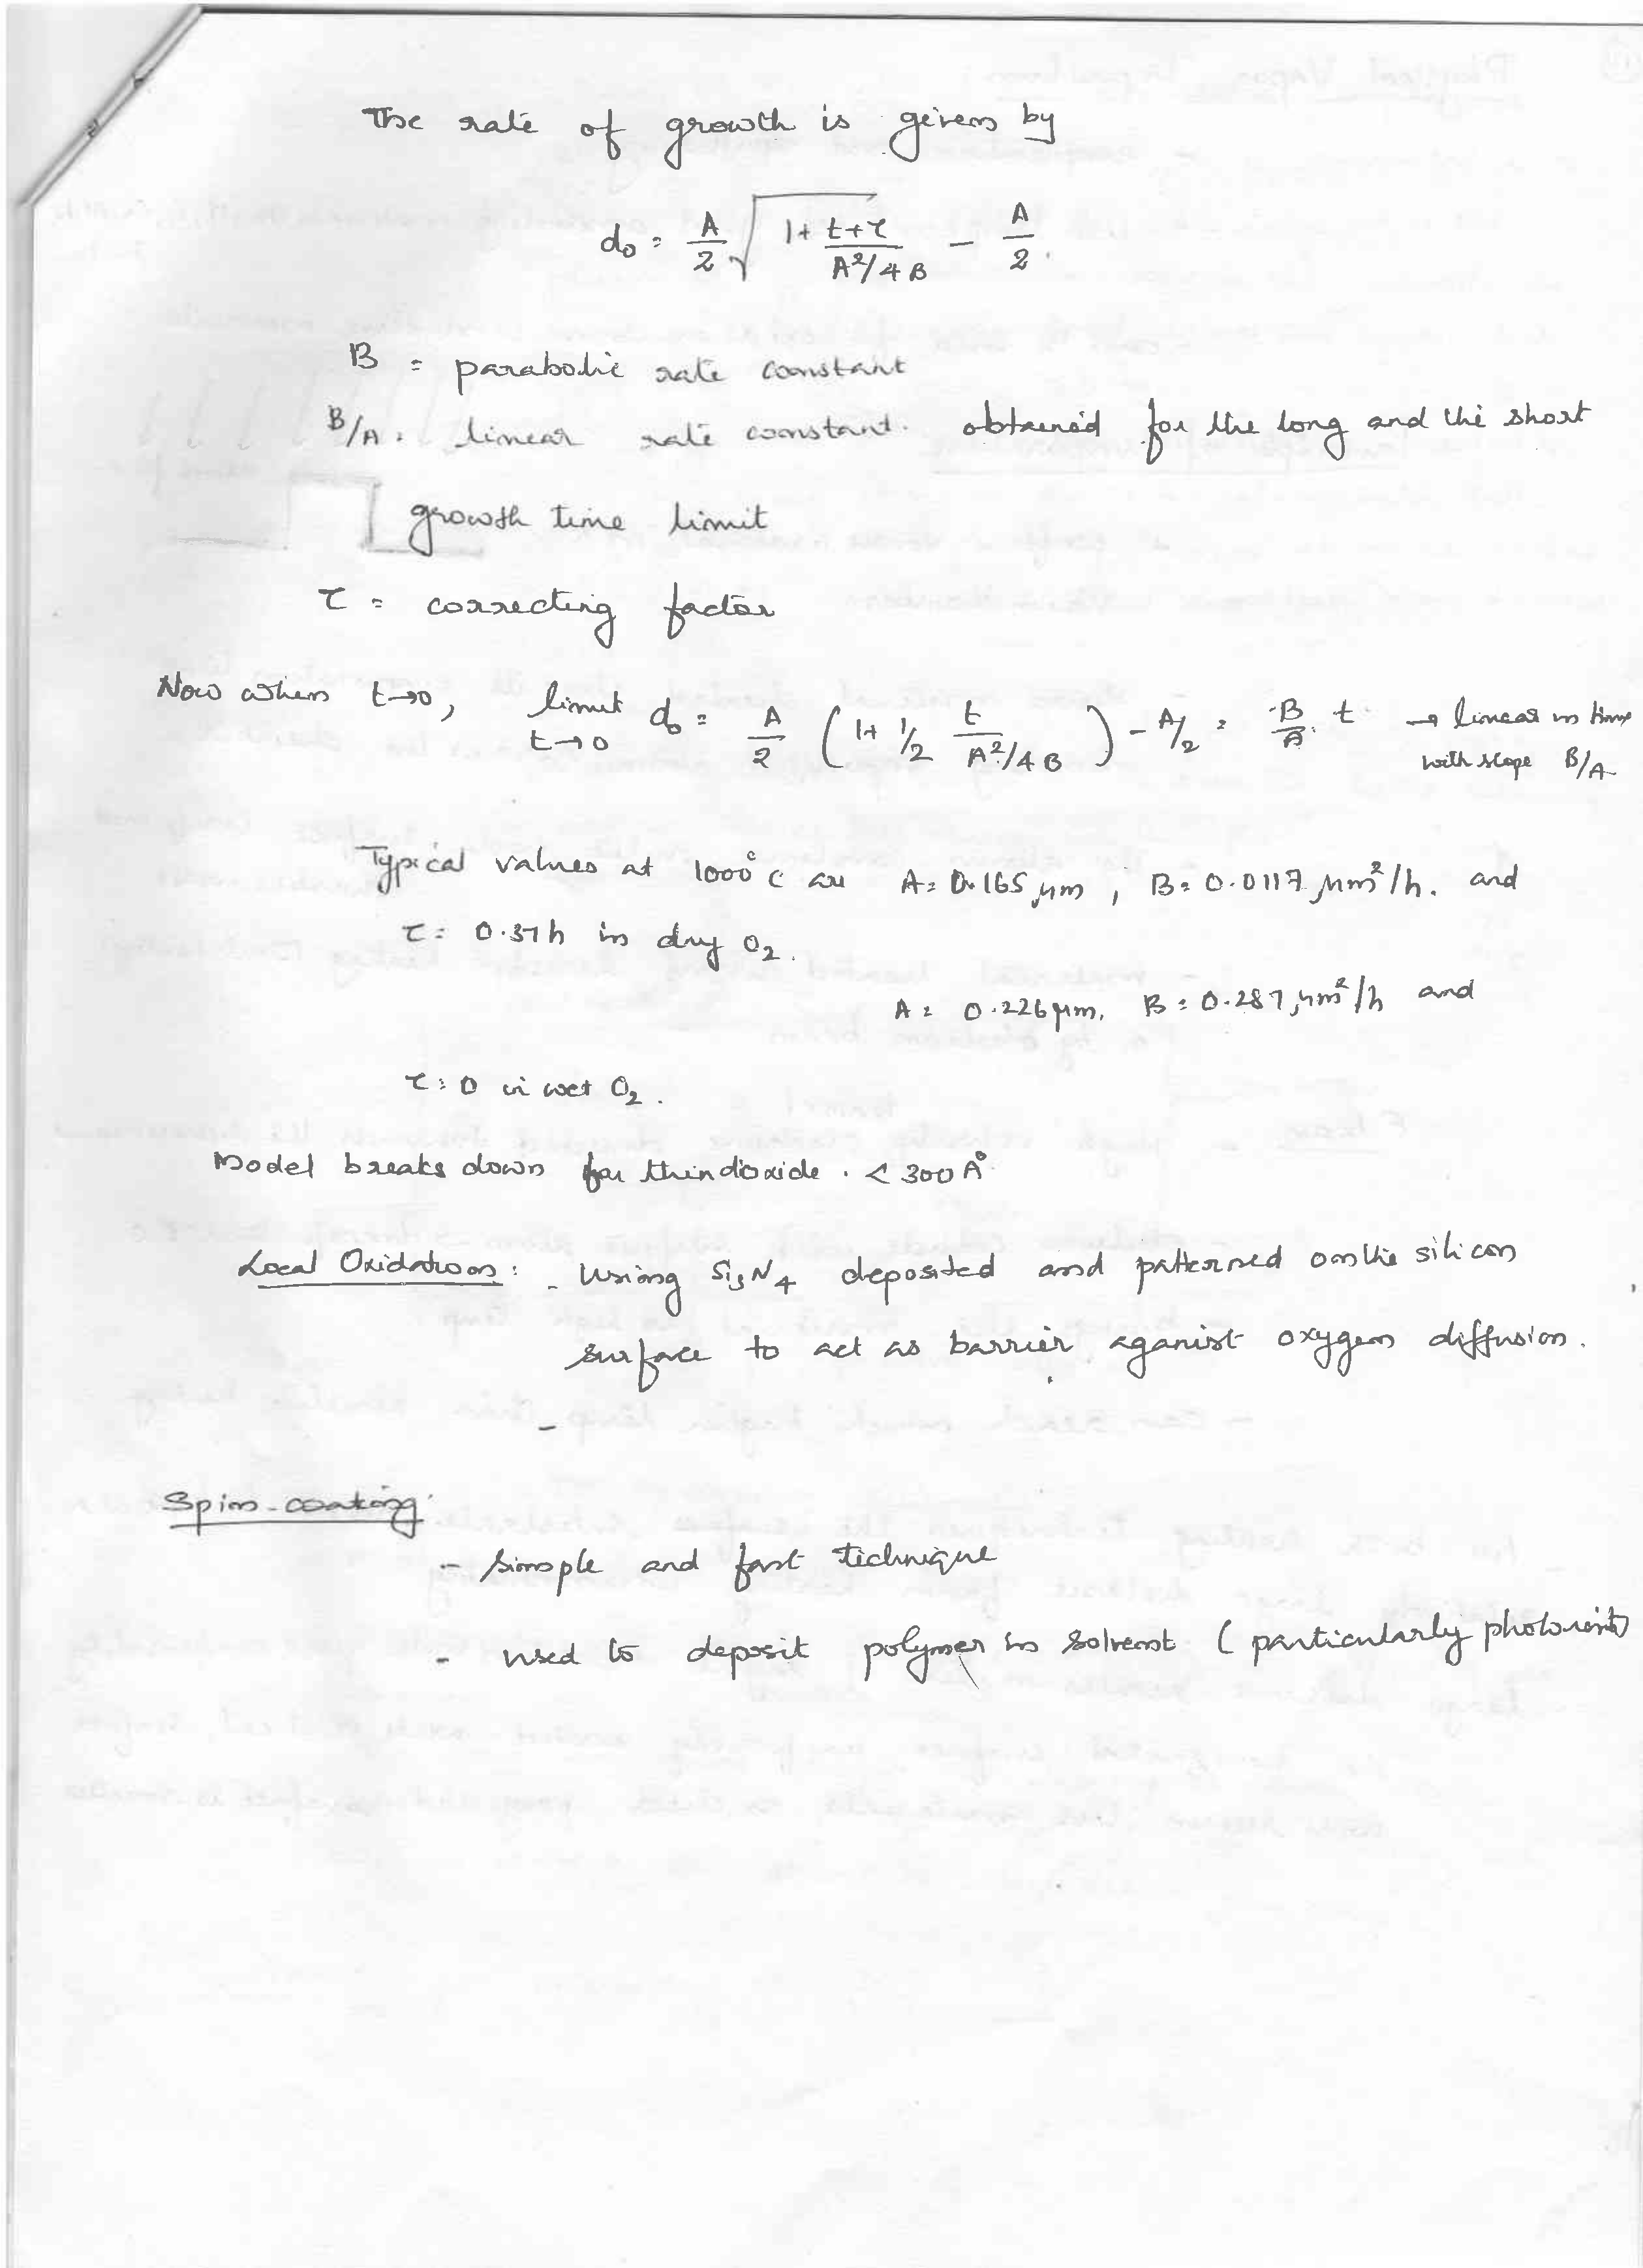 The rate of growth is given by
do = A/2 √(1 + (t+τ)/(A²/4B)) – A/2.
B = parabolic rate constant
B/A = linear rate constant. obtained for the long and the short
growth time limit
τ = correcting factor
Now when t→0, limit t→0 do = A/2 (1 + 1/2 t/(A²/4B)) – A/2 = B/A t → linear in time
with slope B/A
Typical values at 1000°C are A = 0.165 µm, B = 0.0117 µm²/h. and
τ = 0.37h in dry O₂.
A = 0.226 µm, B = 0.287 µm²/h and
τ = 0 in wet O₂.
Model breaks down for thin dioxide. < 300 A°
Local Oxidation: - Using Si₃N₄ deposited and patterned on the silicon
surface to act as barrier aganist oxygen diffusion.
-
Spin-coating
- simple and fast technique
- used to deposit polymer in solvent (particularly photoresist)